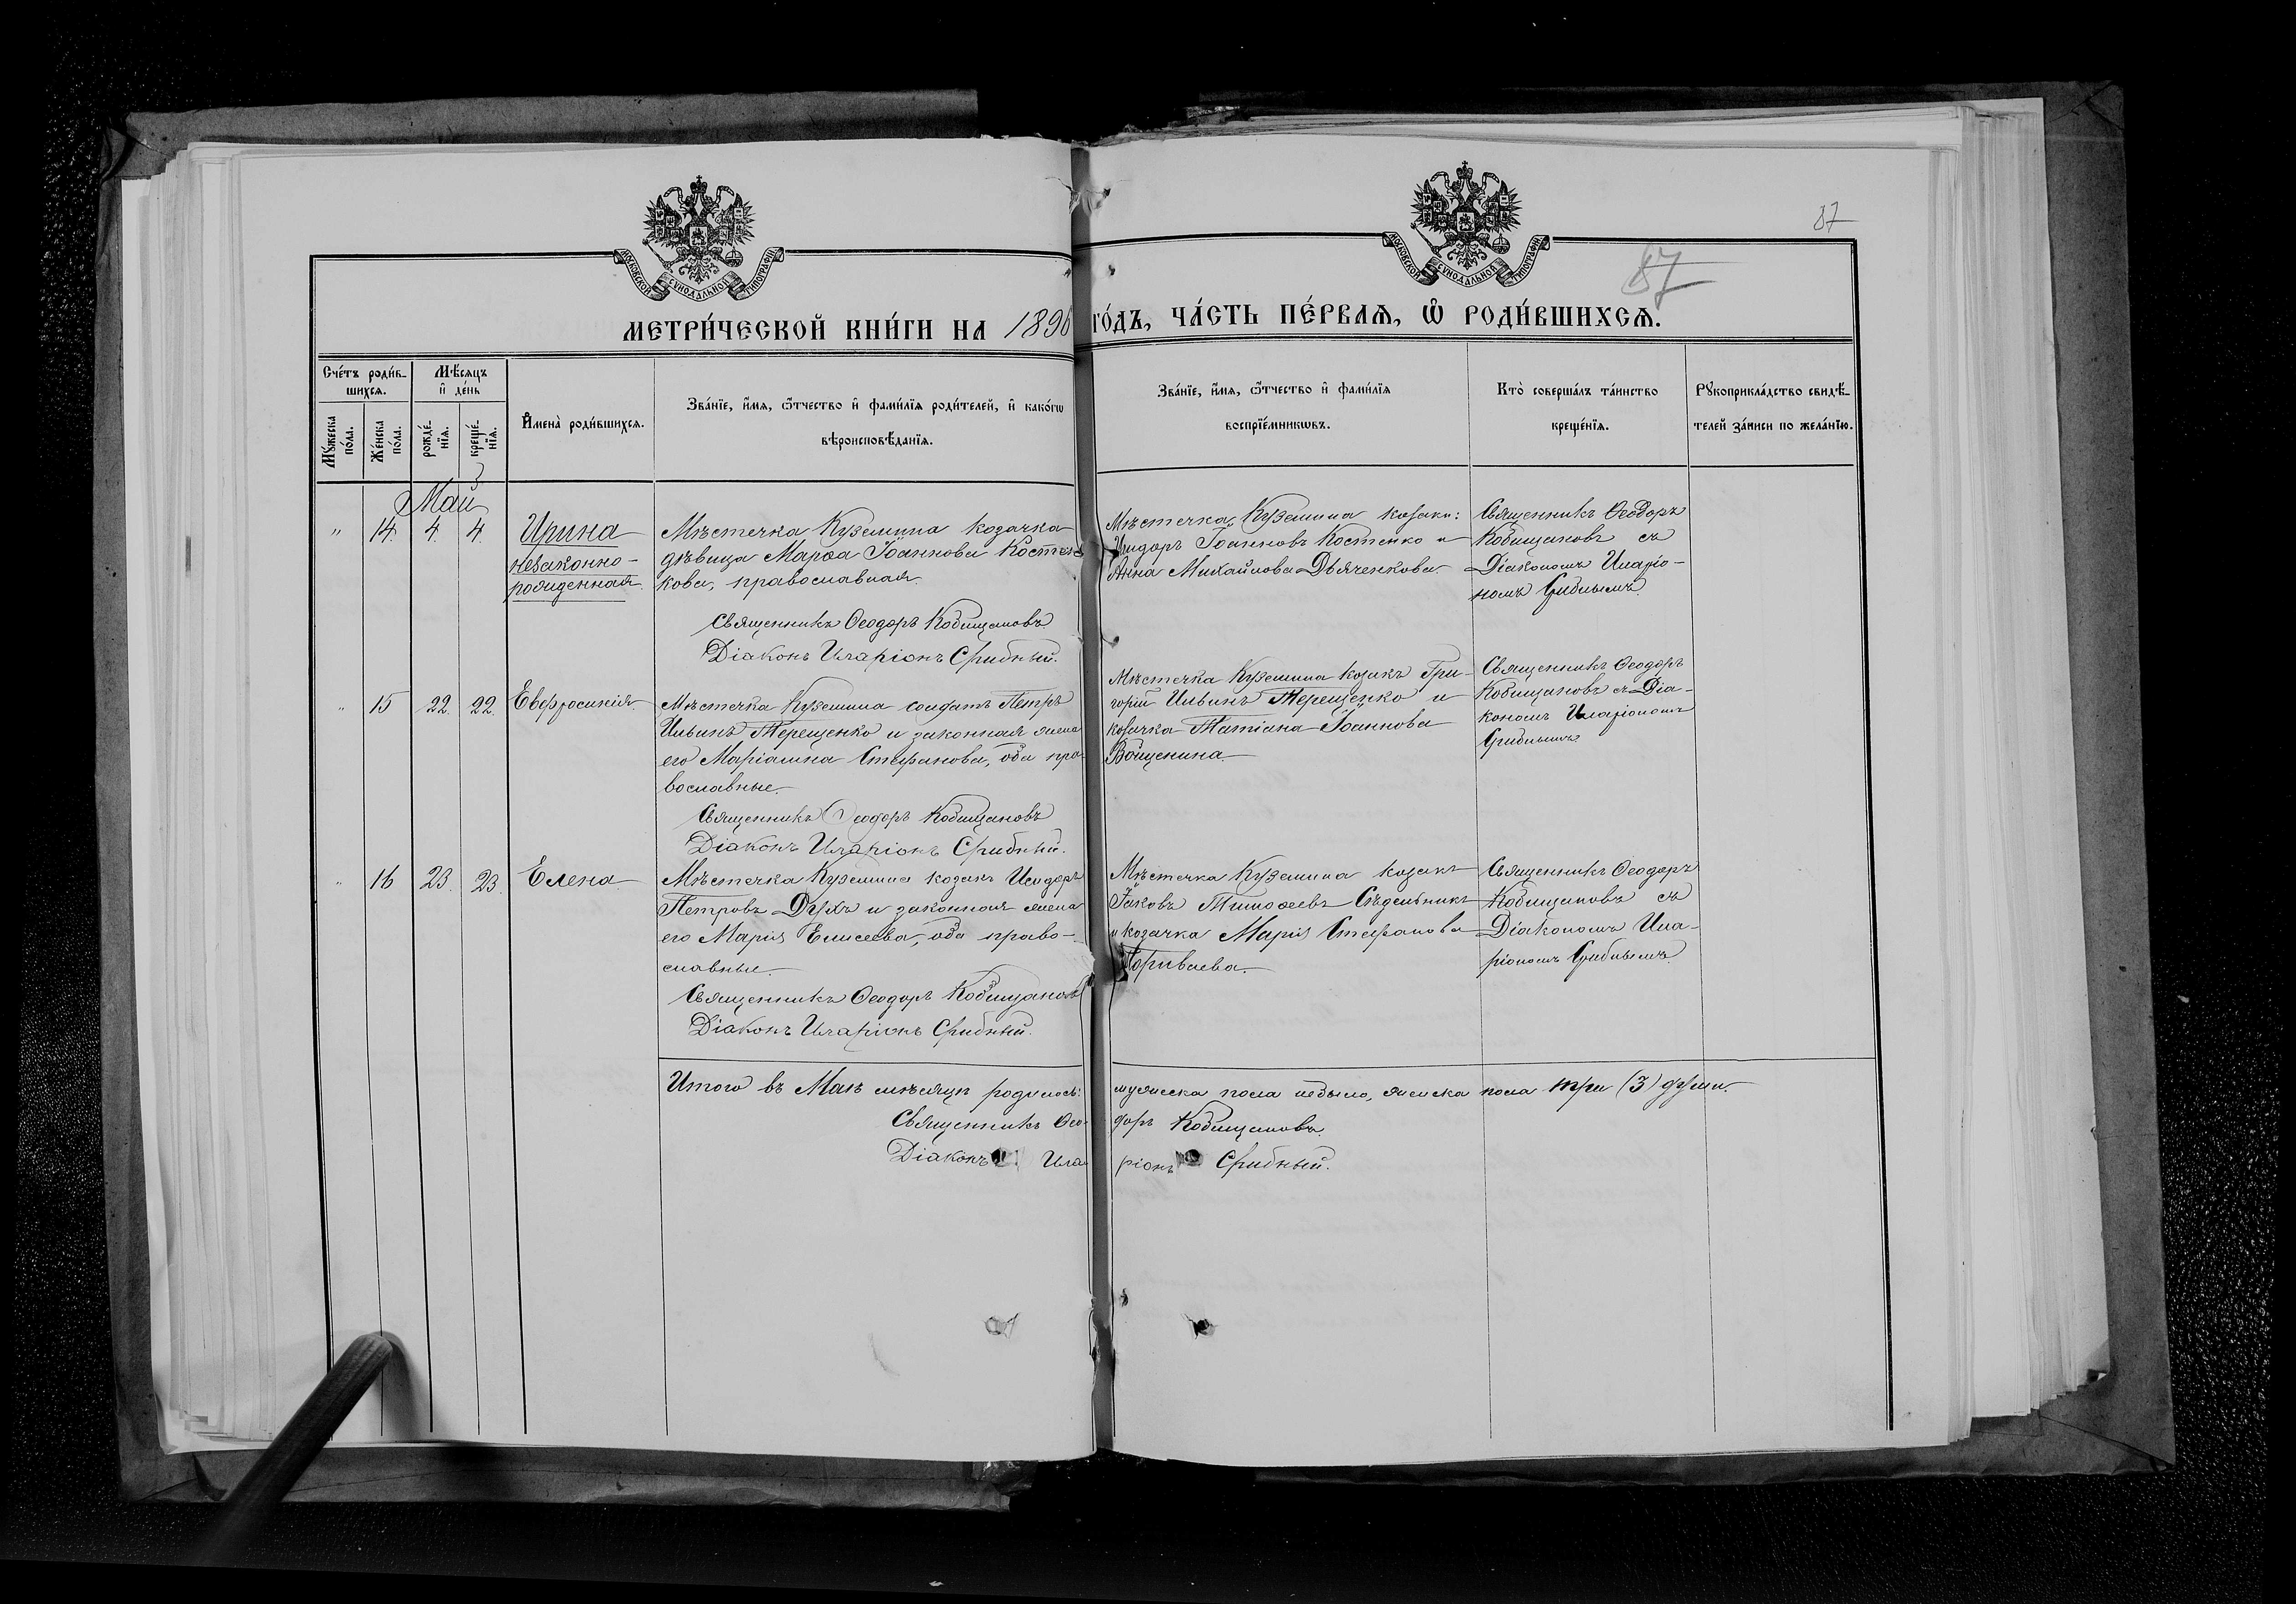 87
87
МОСКОВСКОЙ СѴНОДАЛЬНОЙ ТИПОГРАФІИ
МОСКОВСКОЙ СѴНОДАЛЬНОЙ ТИПОГРАФІИ
МЕТРИ́ЧЕСКОЙ КНИ́ГИ НА 1896 ГО́ДЪ, ЧА́СТЬ ПЕ́РВАѦ, Ѡ҆ РОДИ́ВШИХСѦ.
Сче́тъ роди́в-
шихсѧ.
Мѣ́сѧцъ
и҆ де́нь
Мꙋ́жеска
по́ла.
Же́нска
по́ла.
рожде́-
нїѧ.
креще́-
нїѧ.
И҆мена̀ роди́вшихсѧ.
Зва́нїе, и҆́мѧ, ѻ҆́тчество и҆ фами́лїѧ роди́телей, и҆ како́гѡ
вѣроисповѣ́данїѧ.
Зва́нїе, и҆́мѧ, ѻ҆́тчество и҆ фами́лїѧ
воспрїе́мникѡвъ.
Кто̀ соверша́лъ та́инство
креще́нїѧ.
Рꙋкоприкла́дство свидѣ́-
телей за́писи по жела́нїю.
Май
" 14. 4. 4. Ирина
незаконно-
рожденная.
Мѣстечка Куземина козачка
дѣвица Марѳа Іоаннова Костен-
кова, православная
Священникъ Ѳеодоръ Кобищановъ
Діаконъ Иларіонъ Срибный.
Мѣстечка Куземина козаки:
Исидоръ Іоанновъ Костенко и
Анна Михайлова Дьяченкова
Священникъ Ѳеодоръ
Кобищановъ съ
Діакономъ Иларіо-
номъ Срибнымъ.
" 15 22. 22. Евфросинія.
Мѣстечка Куземина солдатъ Петръ
Ильинъ Терещенко и законная жена
его Маріамна Стефанова, оба пра-
вославные.
Священникъ Ѳеодоръ Кобищановъ
Діаконъ Иларіонъ Срибный.
Мѣстечка Куземина козакъ Гри-
горій Ильинъ Терещенко и
козачка Татіана Іоаннова
Священникъ Ѳеодоръ
Кобищановъ съ Діа-
кономъ Иларіономъ
Срибнымъ.
" 16 23. 23. Елена
Мѣстечка Куземина козакъ Исидоръ
Петровъ Духъ и законная жена
его Марія Елисеева, оба право-
славные.
Священникъ Ѳеодоръ Кобищановъ
Діаконъ Иларіонъ Срибный.
Мѣстечка Куземина козакъ
Іаковъ Тимоѳеевъ Сѣдельникъ
и козачка Марія Стефанова
Священникъ Ѳеодоръ
Кобищановъ съ
Діакономъ Ила-
ріономъ Срибнымъ.
Итого въ Маѣ мѣсяцѣ родилось: мужеска пола небыло, женска пола три (3) души.
Священникъ Ѳео-доръ Кобищановъ.
Діаконъ Ила-ріонъ Срибный.